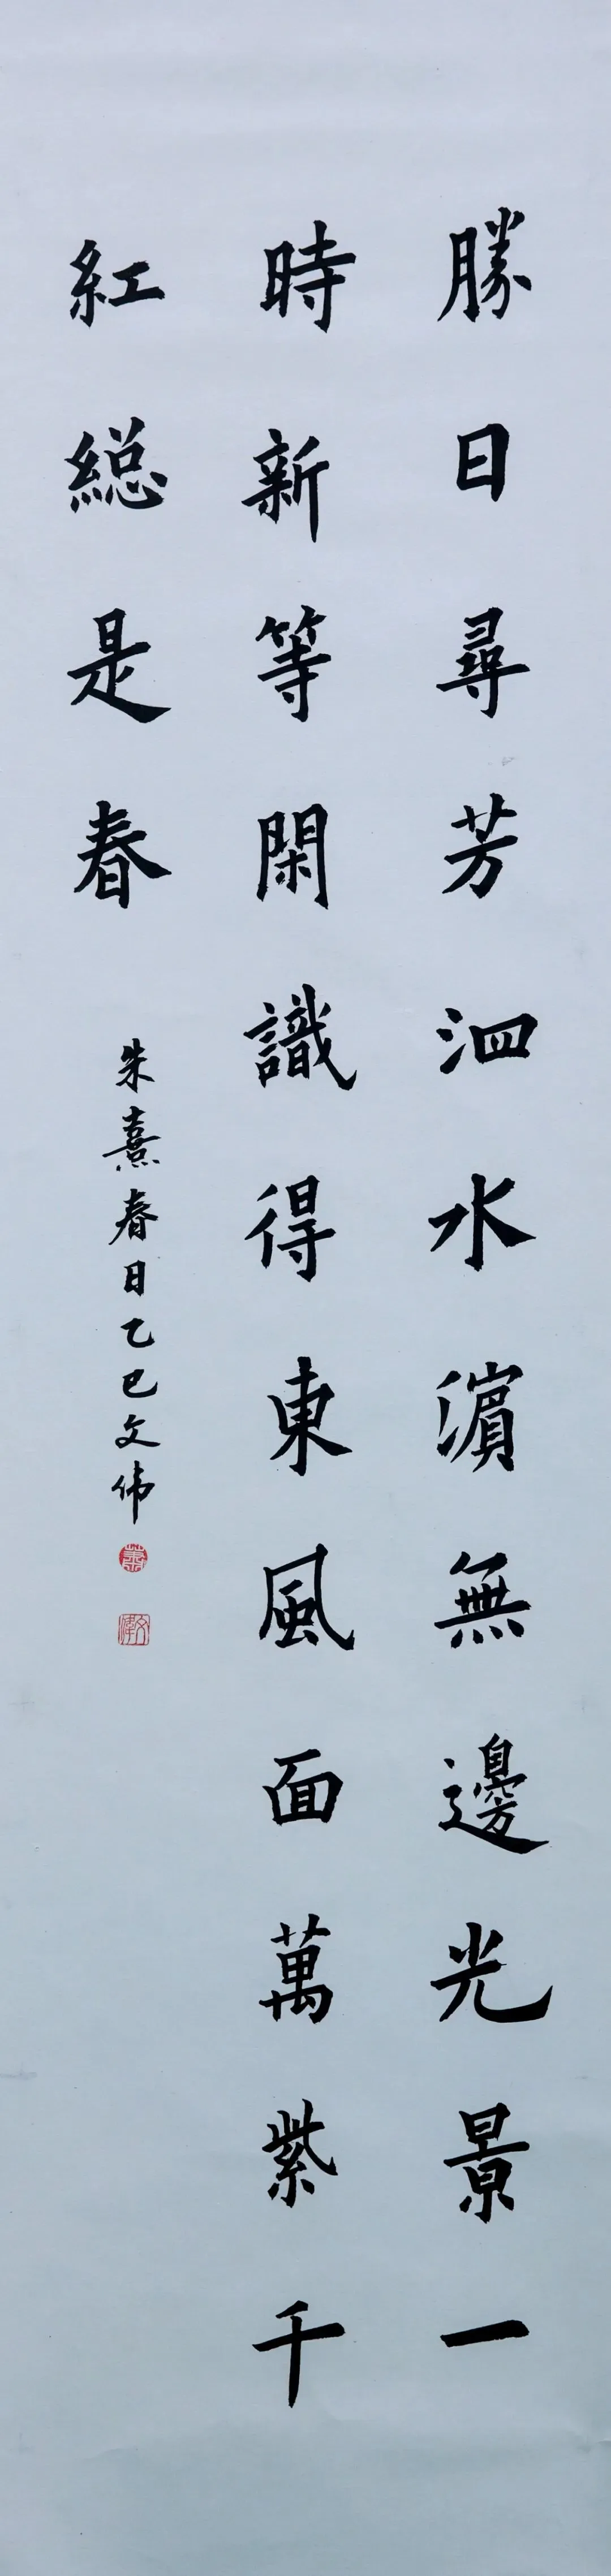 勝日尋芳泗水濵無邊光景一
時新等閑識得東風面萬紫千
紅緫是春
朱熹春日乙巳文伟
蕭
文偉